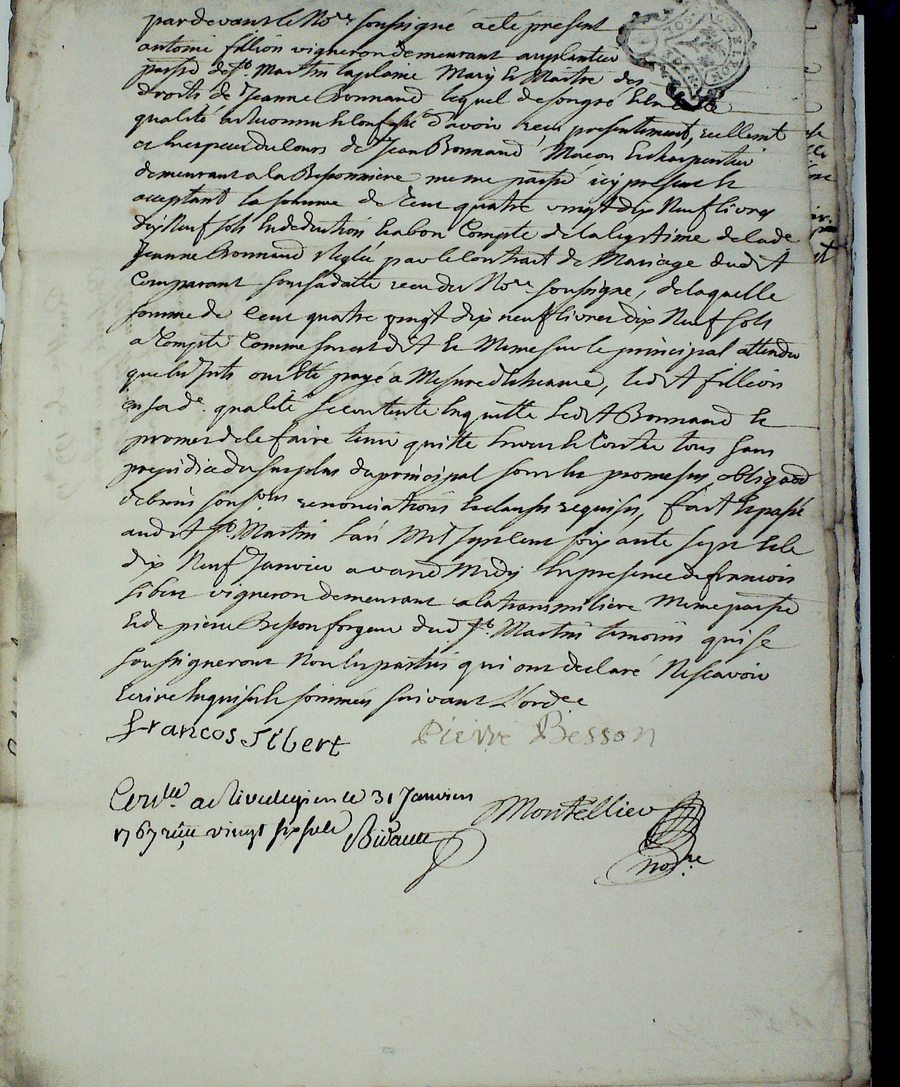 pardevant le No.re soussigné a eté present
antoine fillion vigneron demeurant au plantier
parsse de st. Martin la plaine Mary et Maitre des
droits de Jeanne Bonnand lequel de son gré et en la de
qualité a reconnu et confessé d'avoir recu presentement, reellement
des deniers de Jean Bonnand Macon et charpentier
demeurant a la Bessonniere meme parsse icy present et
acceptant la somme de Cent quatre vingt dix Neuf livres
dix Neuf sols En deduction et a bon Compte de la legitime de lade
Jeanne Bonnand Reglée par le Contrat de Mariage dudit
Comparant sous sa datte recu du No.re soussigné, de laquelle
somme de Cent quatre vingt dix neuf livres dix Neuf sols
a Compte Comme sus est dit et Meme sur le principal attendu
que les jnts ont eté payé a Mesure d'Echeance, ledit fillion
en sa de. qualité se contente En quitte ledit Bonnand et
promet de le faire tenir quitte Envers et Contre tous sans
prejudice du surplus du principal sous les promesses, obligaons
de biens soumons renonciations et clauses requises, fait et passé
audit st. Martin L'an Mil sept cent soixante sept et le
dix Neuf Janvier avant Midy En presence de francois
Sibert vigneron demeurant a la transmiliere Meme parsse
Et de pierre Besson forgeur dud st. Martin temoins qui se
soussigneront Non les parties qui ont declaré Ne scavoir
Ecrire Enquis et sommés suivant l'ordce
francos Sibert Pierre Besson
Conllé. a Rivedegier le 31 Janvier
1767 reçu vingt six sols
Montellier
No.re